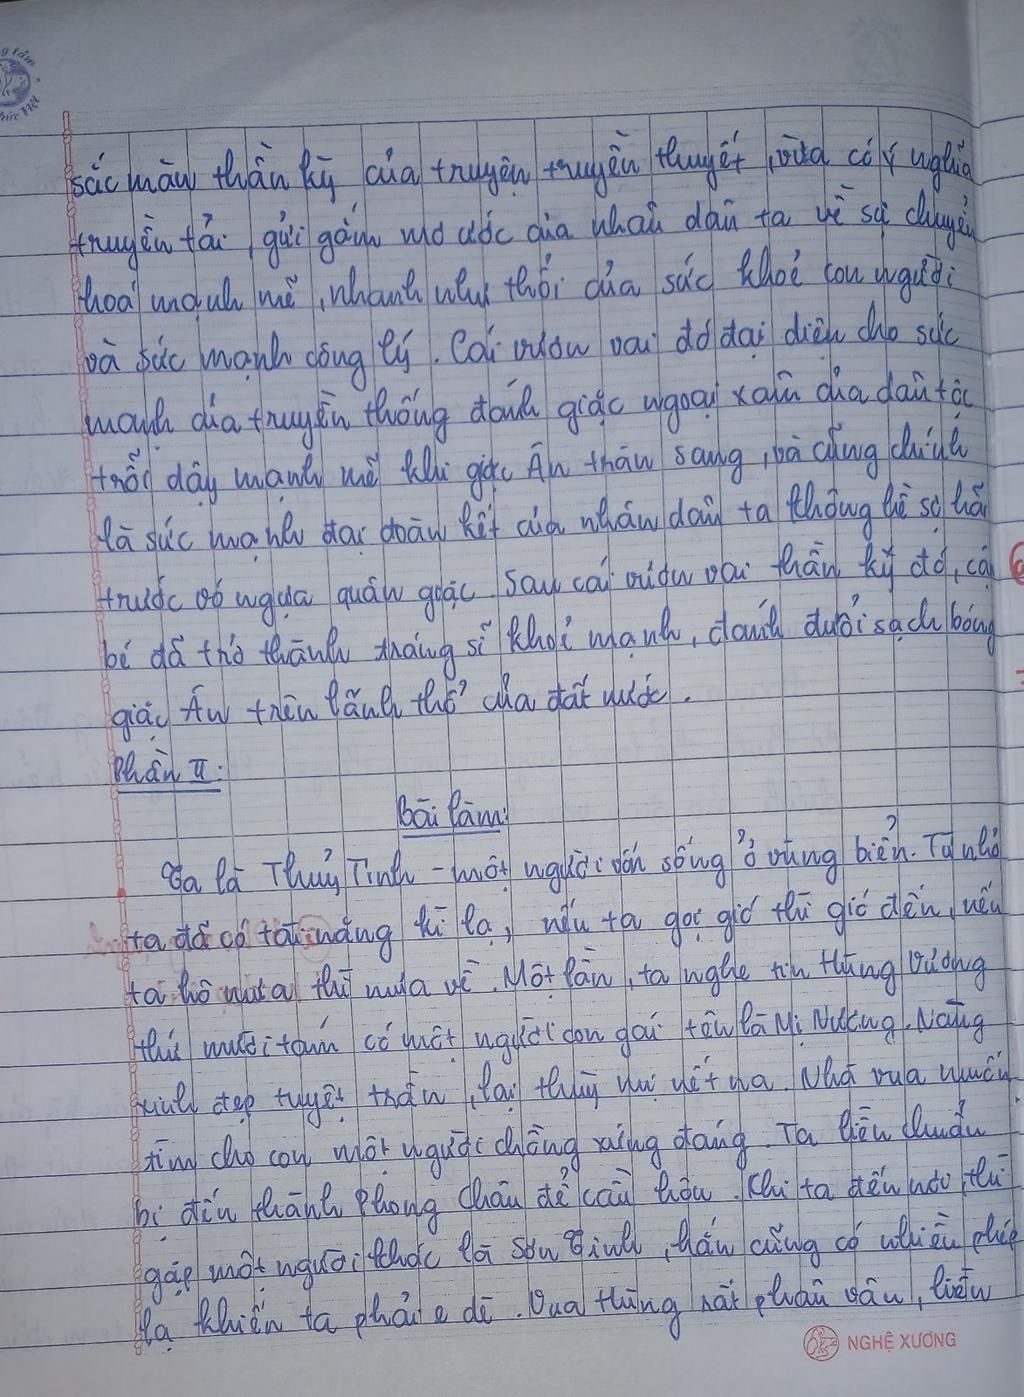 sắc màu thần kỳ của truyện truyền thuyết, vừa có ý nghĩa
truyền tải, gửi gắm mơ ước của nhân dân ta về sự chuyển
hoá mạnh mẽ, nhanh như thổi của sức khoẻ con người
và sức mạnh công lý. Cái vươn vai đó đại diện cho sức
mạnh của truyền thống đánh giặc ngoại xâm của dân tộc
trỗi dậy mạnh mẽ khi giặc Ân tràn sang, và cũng chính
là sức mạnh đại đoàn kết của nhân dân ta không hề sợ hãi
trước vó ngựa quân giặc. Sau cái vươn vai thần kỳ đó, cậ
bé đã trở thành tráng sĩ khoẻ mạnh, đánh đuổi sạch bóng
giặc Ân trên lãnh thổ của đất nước.
Phần II:
Bài làm:
Ta là Thuỷ Tinh - một người vốn sống ở vùng biển. Từ nhỏ
ta đã có tài năng kì lạ, nếu ta gọi gió thì gió đến, nếu
ta hô mưa thì mưa về. Một lần, ta nghe tin Hùng Vương
thứ mười tám có một người con gái tên là Mị Nương. Nàng
xinh đẹp tuyệt trần, lại thùy mị nết na. Nhà vua muốn
tìm cho con một người chồng xứng đáng. Ta liền chuẩn
bị đến thành Phong Châu để cầu hôn. Khi ta đến nơi, thì
gặp một người khác là Sơn Tinh, hắn cũng có nhiều phép
lạ khiến ta phải e dè. Vua Hùng rất phân vân, liền
NGHỆ XƯƠNG